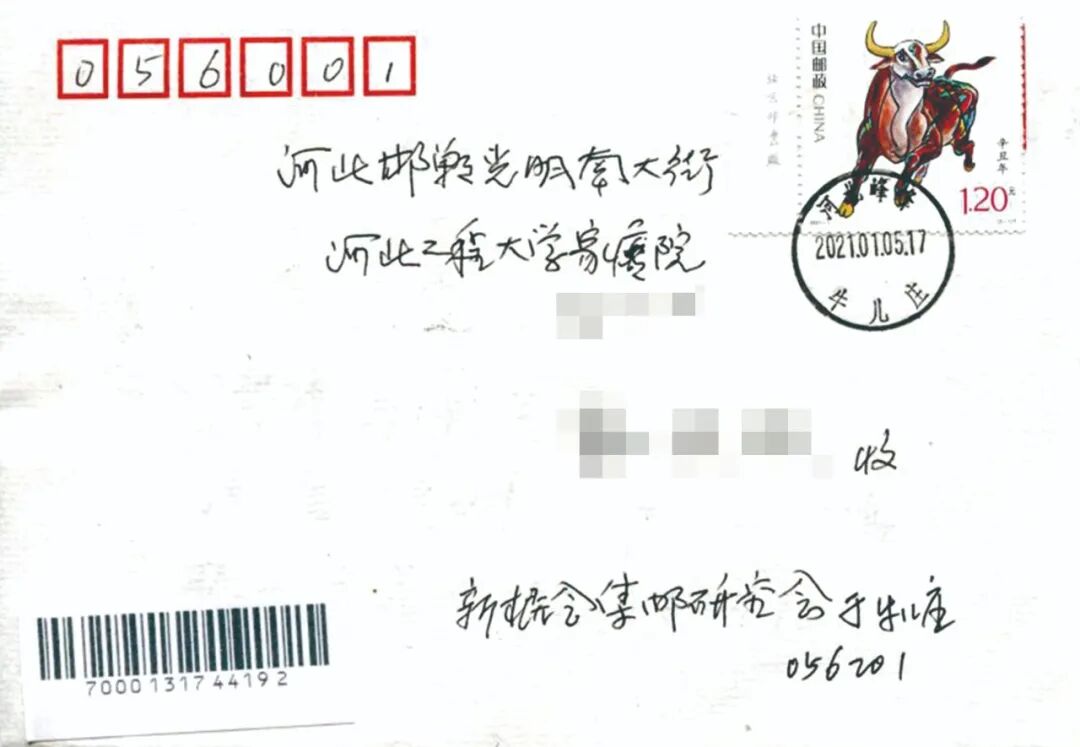 056001
中国邮政 CHINA
辛丑年
1.20元
河北邯郸光明南大街
河北工程大学家属院
河北峰峰
2021.01.05.17
牛儿庄
收
新概念集邮研究会于牛儿庄
056201
7000131744192